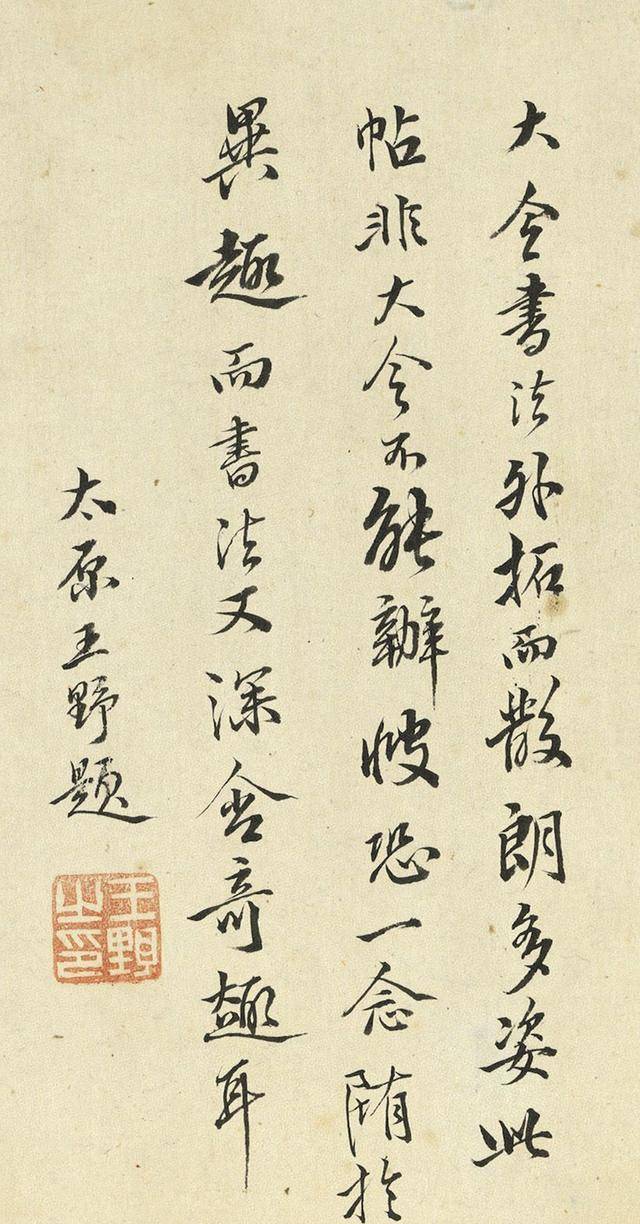 大令書法外拓而散朗多姿此
帖非大令不能辦恐一念陏於
異趣而書法又深含奇趣耳
太原王野題
王野之印